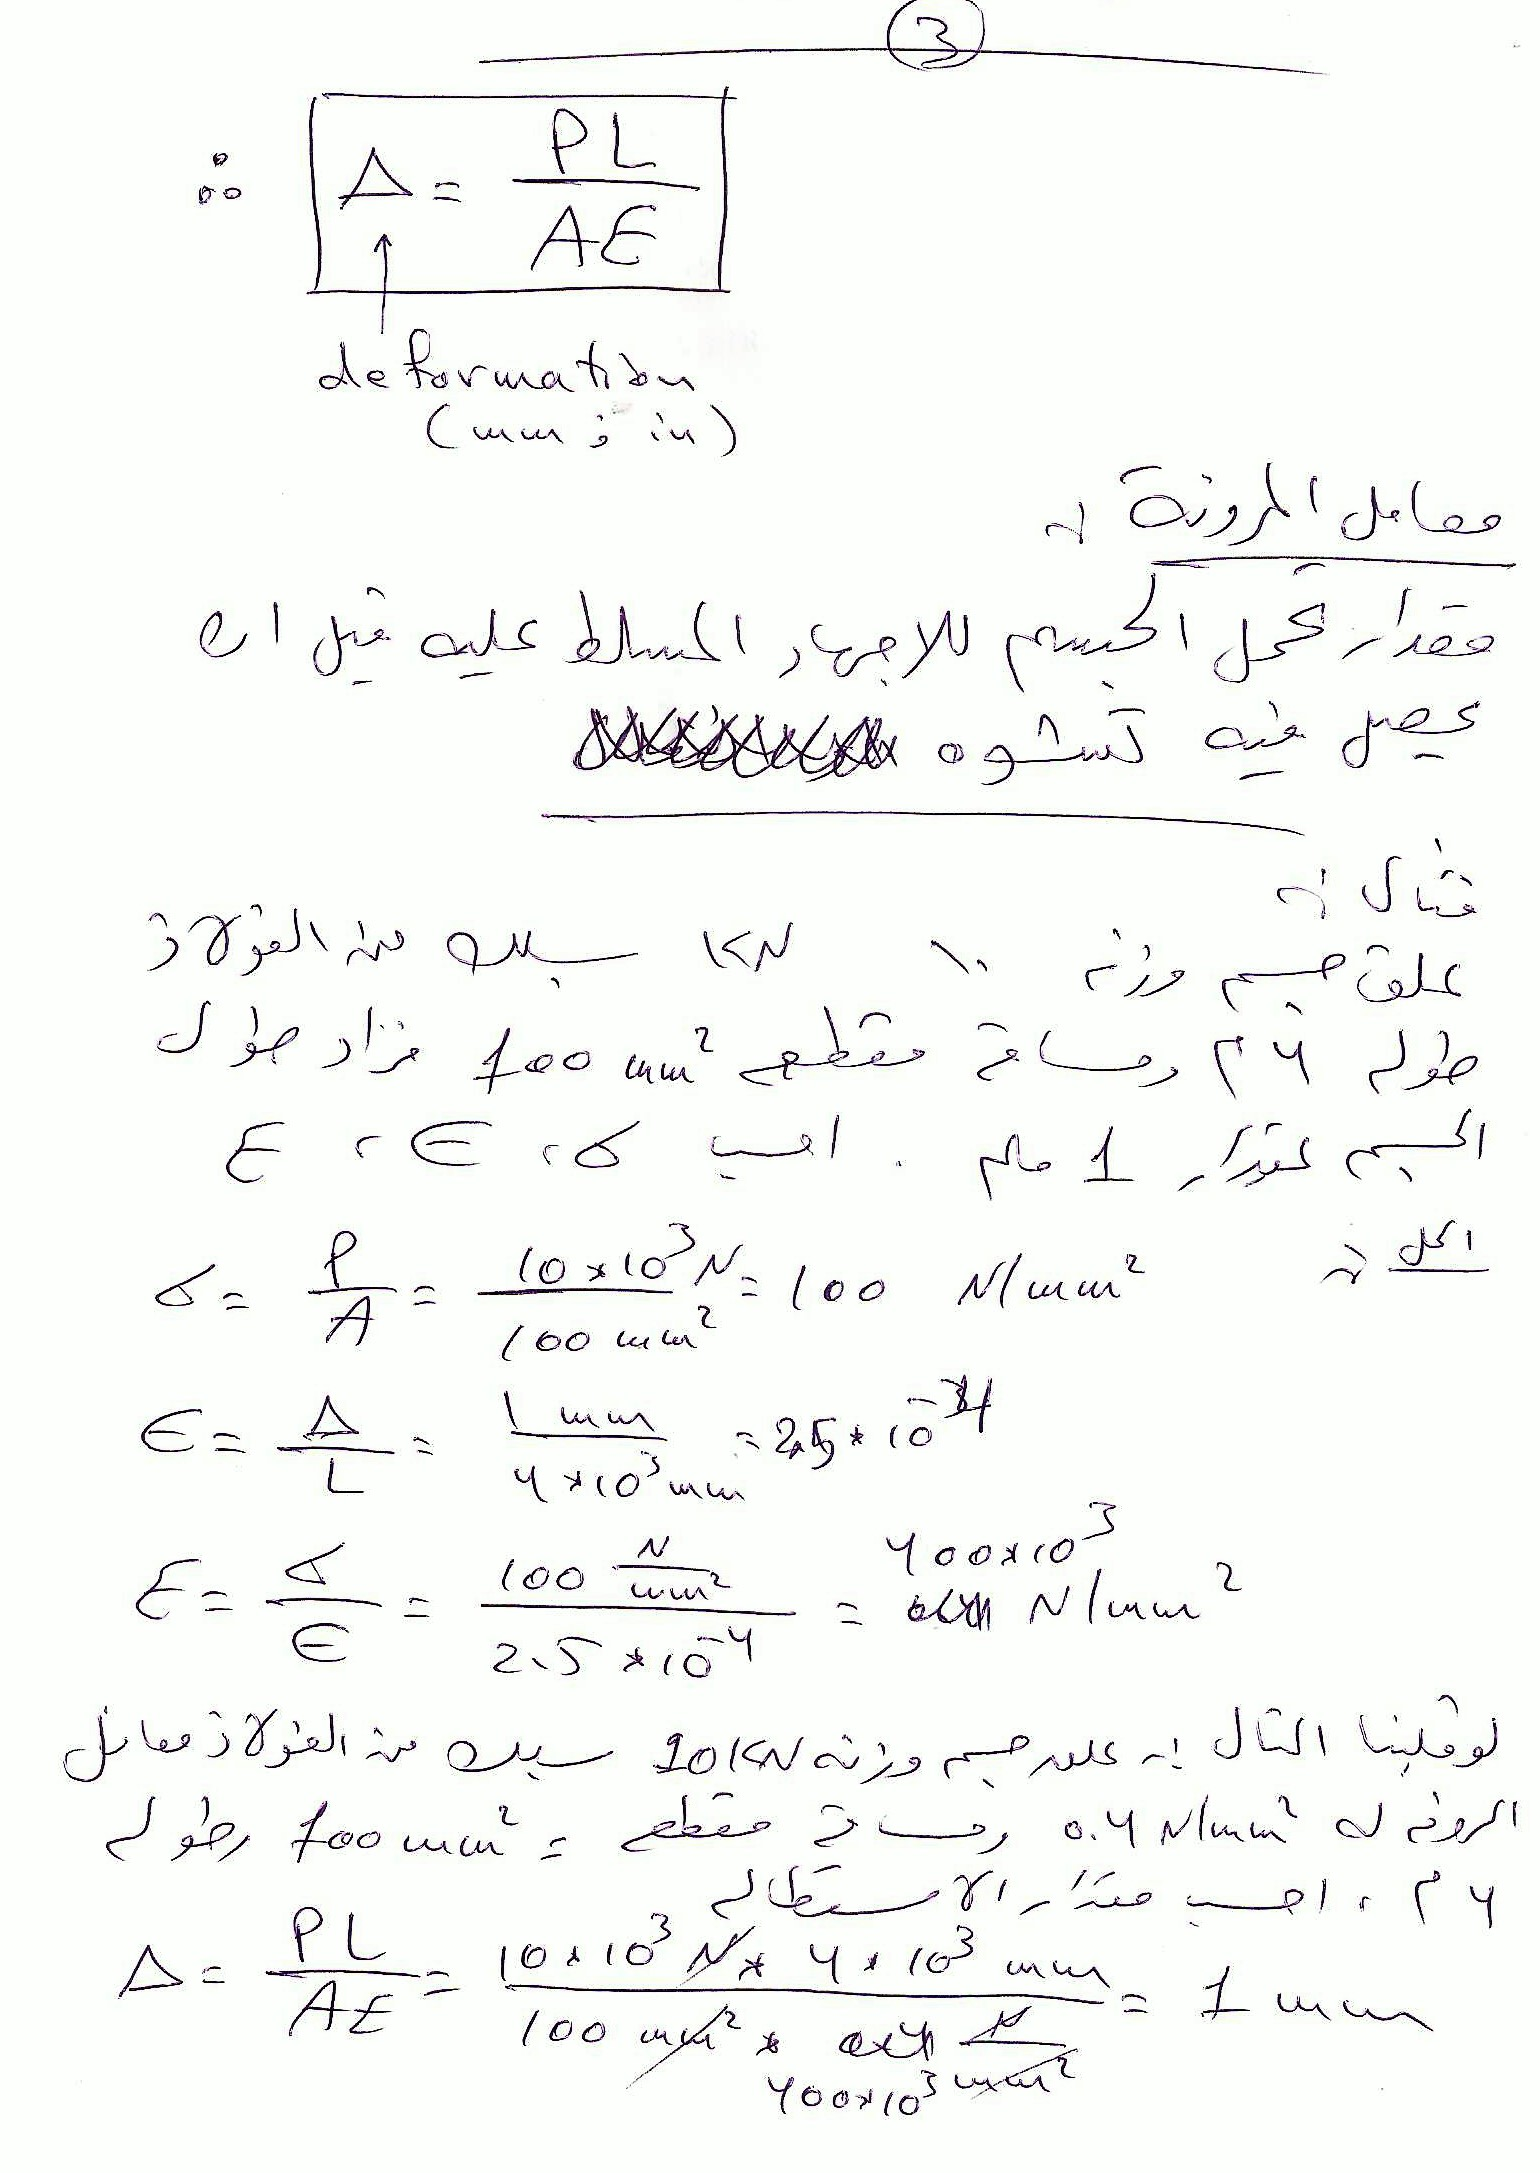 3
∴ Δ = PL / AE
deformation
(mm ; in)
معامل المرونة :-
مقدار تحمل الجسم للاجهاد المسلط عليه قبل ان
يحصل فيه تشوه
مثال :-
علق جسم وزنه ١٠ KN سلك من الفولاذ
طوله 4 م ومساحة مقطعه 100 mm² فزاد طول
الجسم بمقدار 1 ملم . احسب σ ، ϵ ، E
الحل :-
σ = P / A = 10*10³ N / 100 mm² = 100 N/mm²
ϵ = Δ / L = 1 mm / 4*10³ mm = 2.5*10⁻⁴
E = σ / ϵ = 100 N/mm² / 2.5*10⁻⁴ = 400*10³ N/mm²
لو قلبنا المثال :- علق جسم وزنه 10 KN سلك من الفولاذ معامل
المرونه له 0.4 N/mm² ومساحة مقطعه = 100 mm² وطوله
4 م ، احسب مقدار الاستطاله
Δ = PL / AE = 10*10³ N * 4*10³ mm / 100 mm² * 400*10³ N/mm² = 1 mm